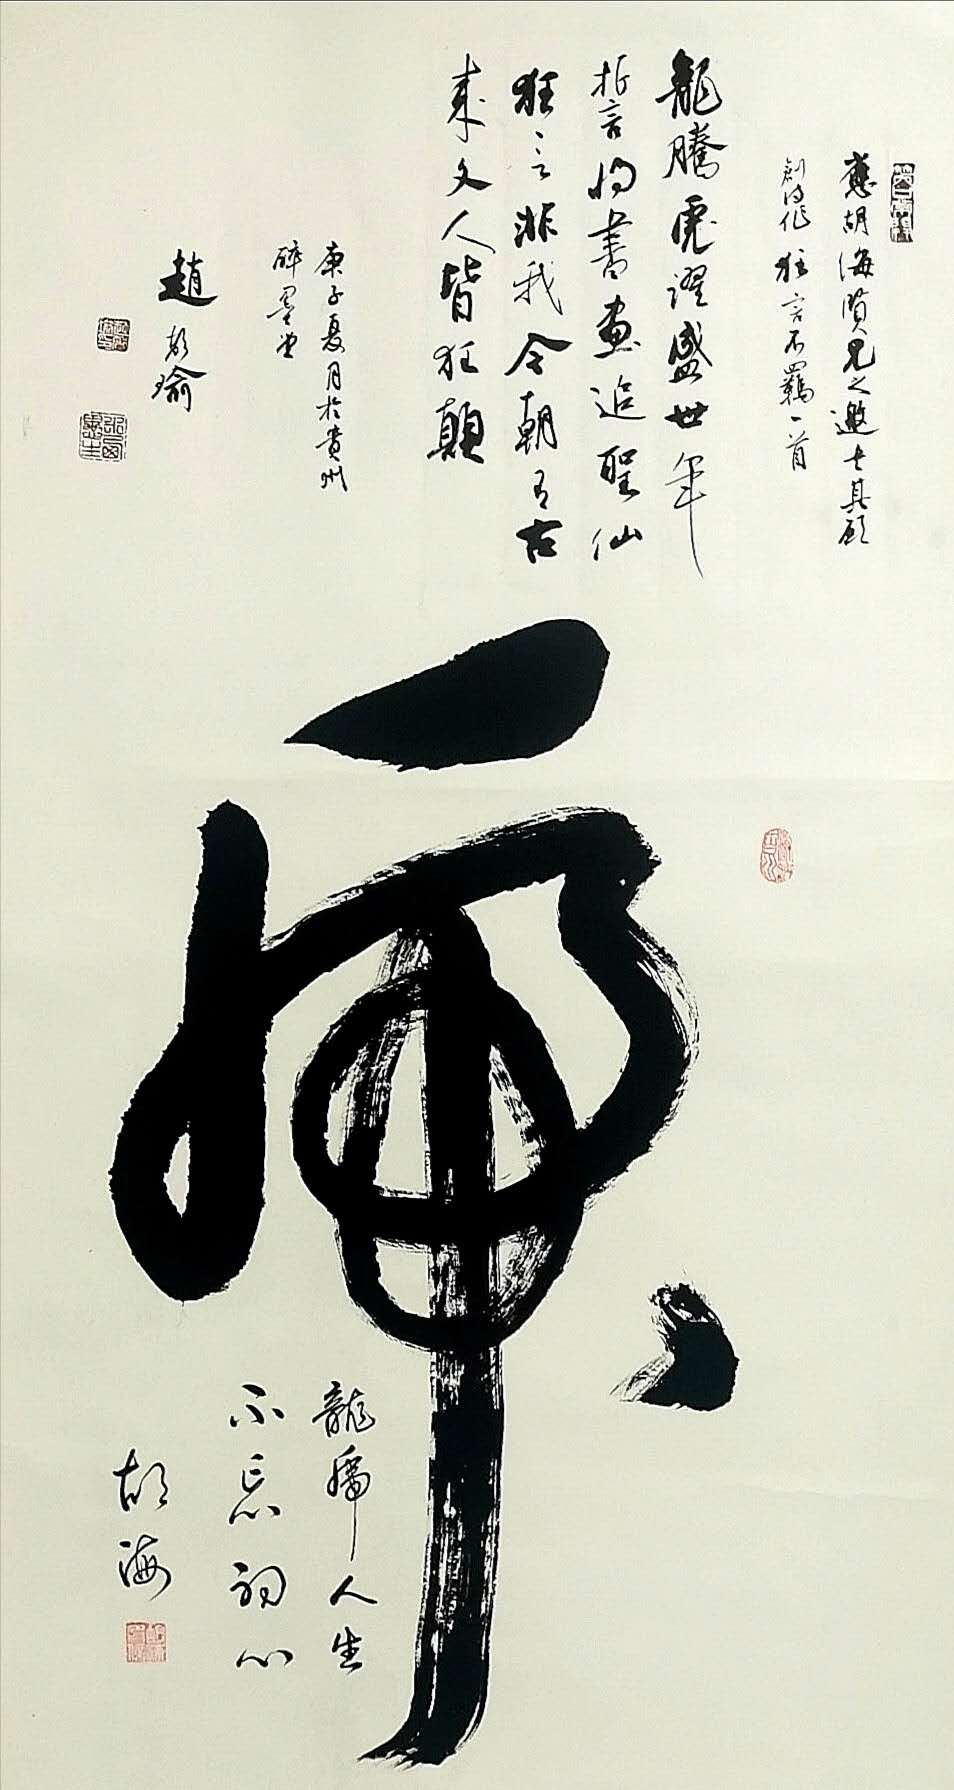 應胡海贤兄之邀去其願
創诗作狂言不羈一首
龍騰虎躍盛世年
指言向書畫追聖仙
狂言非我今朝有古
来文人皆狂顛
庚子夏月於貴州
醉墨堂
趙
瑜
虎
龍虎人生
不忘初心
胡海